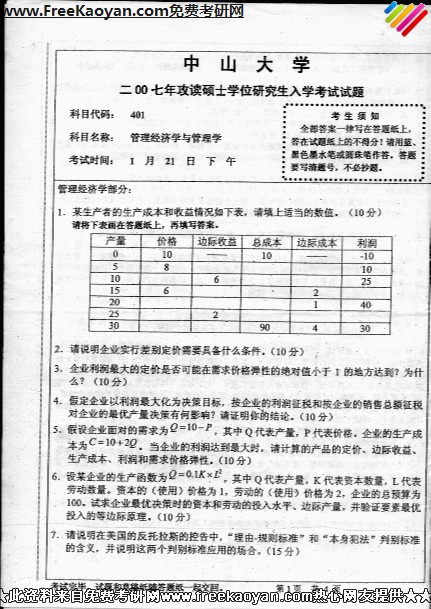 www.FreeKaoyan.com免费考研网
中 山 大 学
二00七年攻读硕士学位研究生入学考试试题
科目代码: 401
科目名称: 管理经济学与管理学
考试时间: 1 月 21 日 下 午
考 生 须 知
全部答案一律写在答题纸上,
答在试题纸上的不得分!请用蓝、
黑色墨水笔或圆珠笔作答。答题
要写清题号,不必抄题。
管理经济学部分:
1. 某生产者的生产成本和收益情况如下表,请填上适当的数值。(10分)
请将下表画在答题纸上,再填写答案。
产量 价格 边际收益 总成本 边际成本 利润
0 10 —— 10 —— -10
5 8 10
10 6 25
15 6 2
20 1 40
25 2
30 90 4 30
2. 请说明企业实行差别定价需要具备什么条件。(10分)
3. 企业利润最大的定价是否可能在需求价格弹性的绝对值小于1的地方达到?为什
么?(10分)
4. 假定企业以利润最大化为决策目标,按企业的利润征税和按企业的销售总额征税
对企业的最优产量决策有何影响?请证明你的结论。(10分)
5. 假设企业面对的需求为Q=10-P,其中Q代表产量,P代表价格。企业的生产成
本为C=10+2Q。当企业的利润达到最大时,请计算的产品的定价、边际收益、
生产成本、利润和需求价格弹性。(10分)
6. 设某企业的生产函数为Q=0.1K×L²,其中Q代表产量,K代表资本数量,L代表
劳动数量。资本的(使用)价格为1,劳动的(使用)价格为2,企业的总预算为
100。试求企业最优决策时的资本和劳动的投入水平、边际产量,并验证要素最优
投入的等边际原理。(10分)
7. 请说明在美国的反托拉斯的控告中,“理由-规则标准”和“本身犯法”判别标准
的含义,并说明这两个判别标准应用的场合。(15分)
考试完毕,试题和草稿纸随答题纸一起交回。 第 1 页 共 页
★此资料来自免费考研网www.freekaoyan.com热心网友提供★★